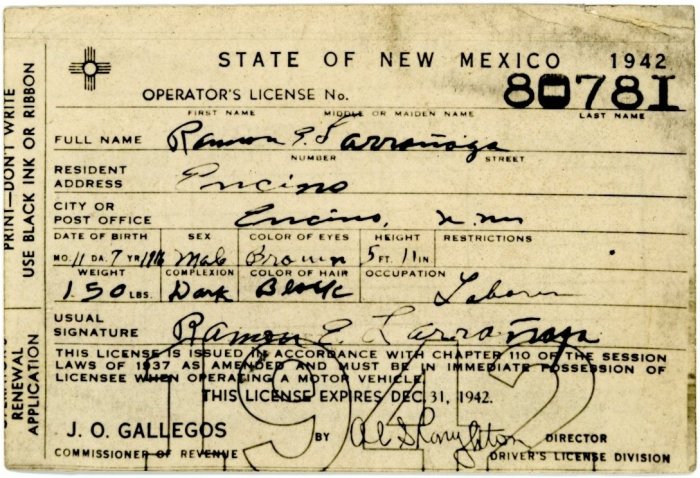 STATE OF NEW MEXICO 1942
OPERATOR'S LICENSE No. 80781
FIRST NAME MIDDLE OR MAIDEN NAME LAST NAME
FULL NAME Ramon E. Larrañaga
NUMBER STREET
RESIDENT ADDRESS Encino
CITY OR POST OFFICE Encino, N. M.
DATE OF BIRTH SEX COLOR OF EYES HEIGHT RESTRICTIONS
MO. 11 DA. 7 YR. 1916 Male Brown 5 FT. 11 IN.
WEIGHT COMPLEXION COLOR OF HAIR OCCUPATION
150 LBS. Dark Black Laborer
USUAL SIGNATURE Ramon E. Larrañaga
THIS LICENSE IS ISSUED IN ACCORDANCE WITH CHAPTER 110 OF THE SESSION
LAWS OF 1937 AS AMENDED AND MUST BE IN IMMEDIATE POSSESSION OF
LICENSEE WHEN OPERATING A MOTOR VEHICLE.
THIS LICENSE EXPIRES DEC. 31, 1942.
1942
J. O. GALLEGOS BY DIRECTOR
COMMISSIONER OF REVENUE DRIVER'S LICENSE DIVISION
PRINT—DON'T WRITE
USE BLACK INK OR RIBBON
RENEWAL
APPLICATION